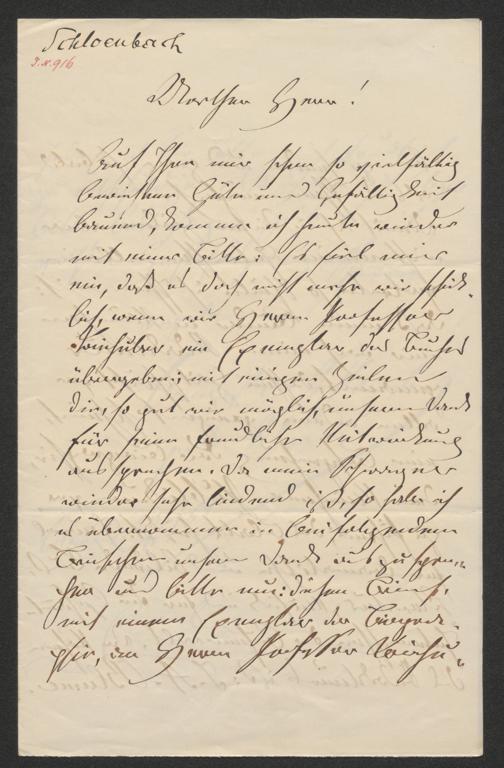 Schloenbach
Werther Herr!
Auf Ihre mir schon so vielfältig
bewiesene Güte und Gefälligkeit
bauend, komme ich heute wieder
mit einer Bitte: Es fiel mir
ein, daß es doch nicht mehr wie schick-
lich, wenn wir Herrn Professor
ein Exemplar des Buches
übergeben, mit einigen Zeilen
die, so gut wie möglich, unseren Dank
für seine freundliche Mitwirkung
aussprechen. Da mein Schwager
wieder sehr leidend ist, so habe ich
es übernommen in beifolgendem
Briefchen unsern Dank auszuspre-
chen und bitte nun: diesen Brief,
mit einem Exemplar der Biogra-
phie, an Herrn Professor